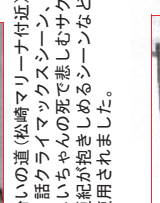 いの道(松崎マリーナ付近)
話クライマックスシーン、
いちゃんの死で悲しむサク
亜紀が抱きしめるシーンなど
用されました。